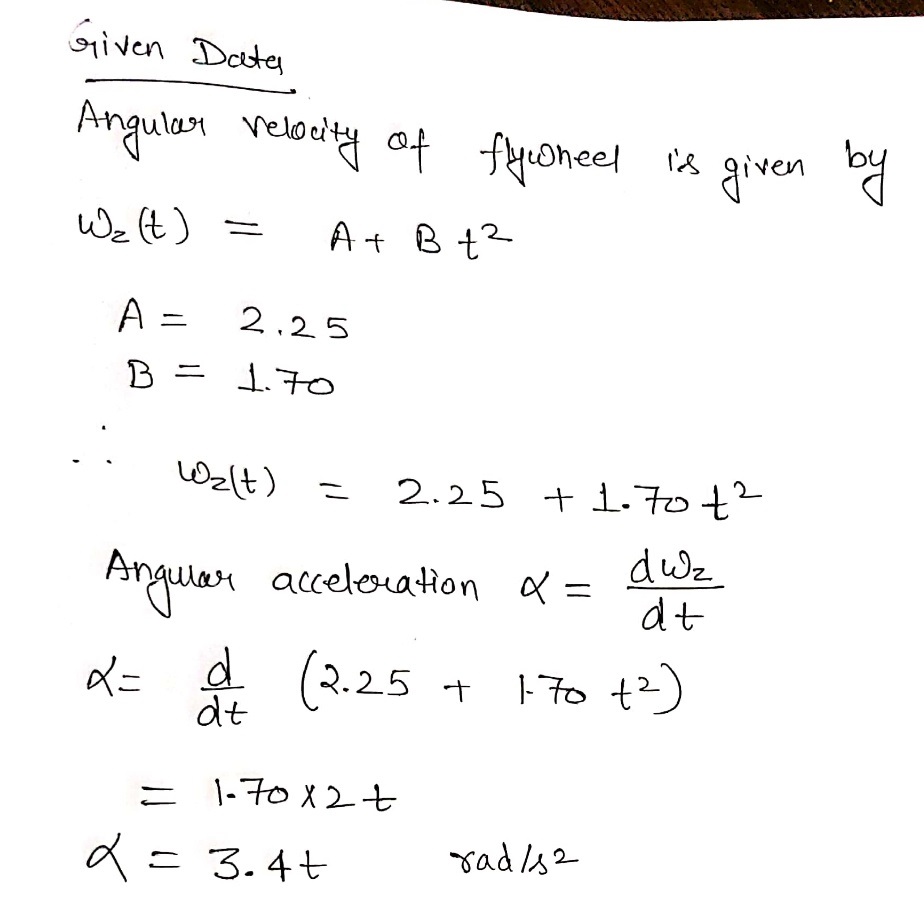 Given Data
Angular velocity of flywheel is given by
ω_z(t) = A + B t²
A = 2.25
B = 1.70
∴ ω_z(t) = 2.25 + 1.70 t²
Angular acceleration α = dω_z/dt
α = d/dt (2.25 + 1.70 t²)
= 1.70 x 2 t
α = 3.4t rad/s2